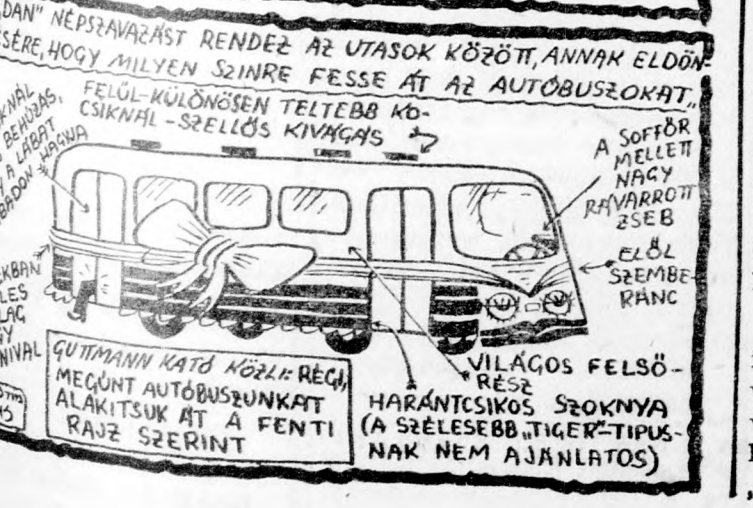 DAN" NÉPSZAVAZÁST RENDEZ AZ UTASOK KÖZÖTT, ANNAK ELDÖN-
ÉSÉRE, HOGY MILYEN SZINRE FESSE ÁT AZ AUTÓBUSZOKAT„
FELÜL-KÜLÖNÖSEN TELTEBB KO-
CSIKNÁL-SZELLŐS KIVÁGÁS
KNÁL
BEHUZÁS,
A LÁBAT
BADON HAGYJA
A SOFFŐR
MELLETT
NAGY
RÁVARROTT
ZSEB
ELŐL
SZEMBE-
RÁNC
EKBAN
LES
LAG
GY
NIVAL
GUTTMANN KATÓ KÖZLI: RÉGI,
MEGÚNT AUTÓBUSZUNKAT
ALAKITSUK ÁT A FENTI
RAJZ SZERINT
VILÁGOS FELSŐ-
RÉSZ
HARÁNTCSIKOS SZOKNYA
(A SZÉLESEBB „TIGER"-TIPUS-
NAK NEM AJÁNLATOS)